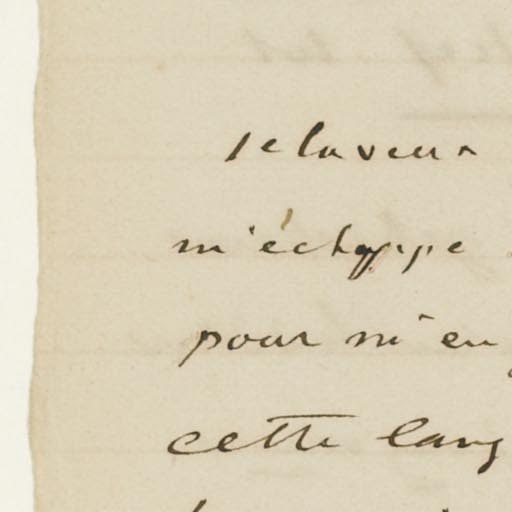 je la veux
m'échappe
pour m'en
cette lang